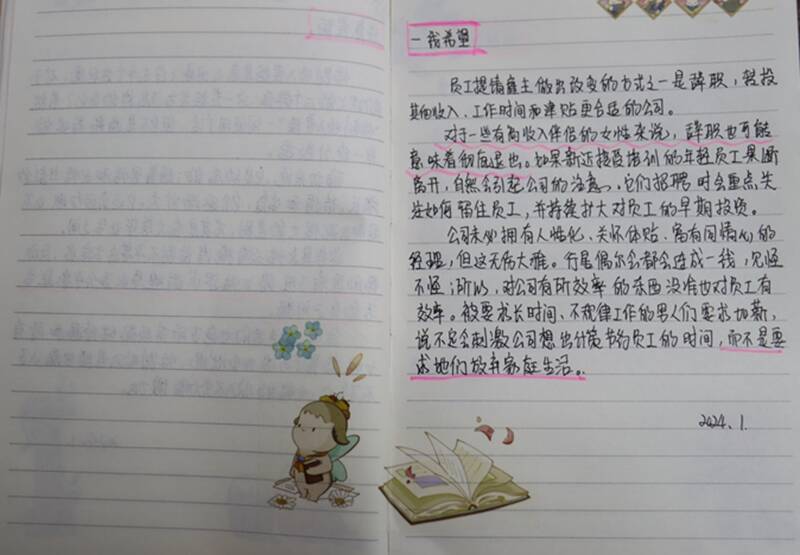 一 我希望
员工提请雇主做出改变的方式之一是辞职,转投
其他收入、工作时间和津贴更合适的公司。
对于一些有高收入伴侣的女性来说,辞职也可能
意味着彻底退出。如果新近接受培训的年轻员工果断
离开,自然会引起公司的注意、它们招聘时会重点关
注如何留住员工,并持续扩大对员工的早期投资。
公司未必拥有人性化、关怀体贴、富有同情心的
经理,但这无伤大雅。行尾偶尔会都会连成一线,见怪
不怪;所以,对公司有所效率的东西没准也对员工有
效率。被要求长时间、不规律工作的男人们要求加薪,
说不定会刺激公司想出计策节约员工的时间,而不是要
求他们放弃家庭生活。
2024.1.